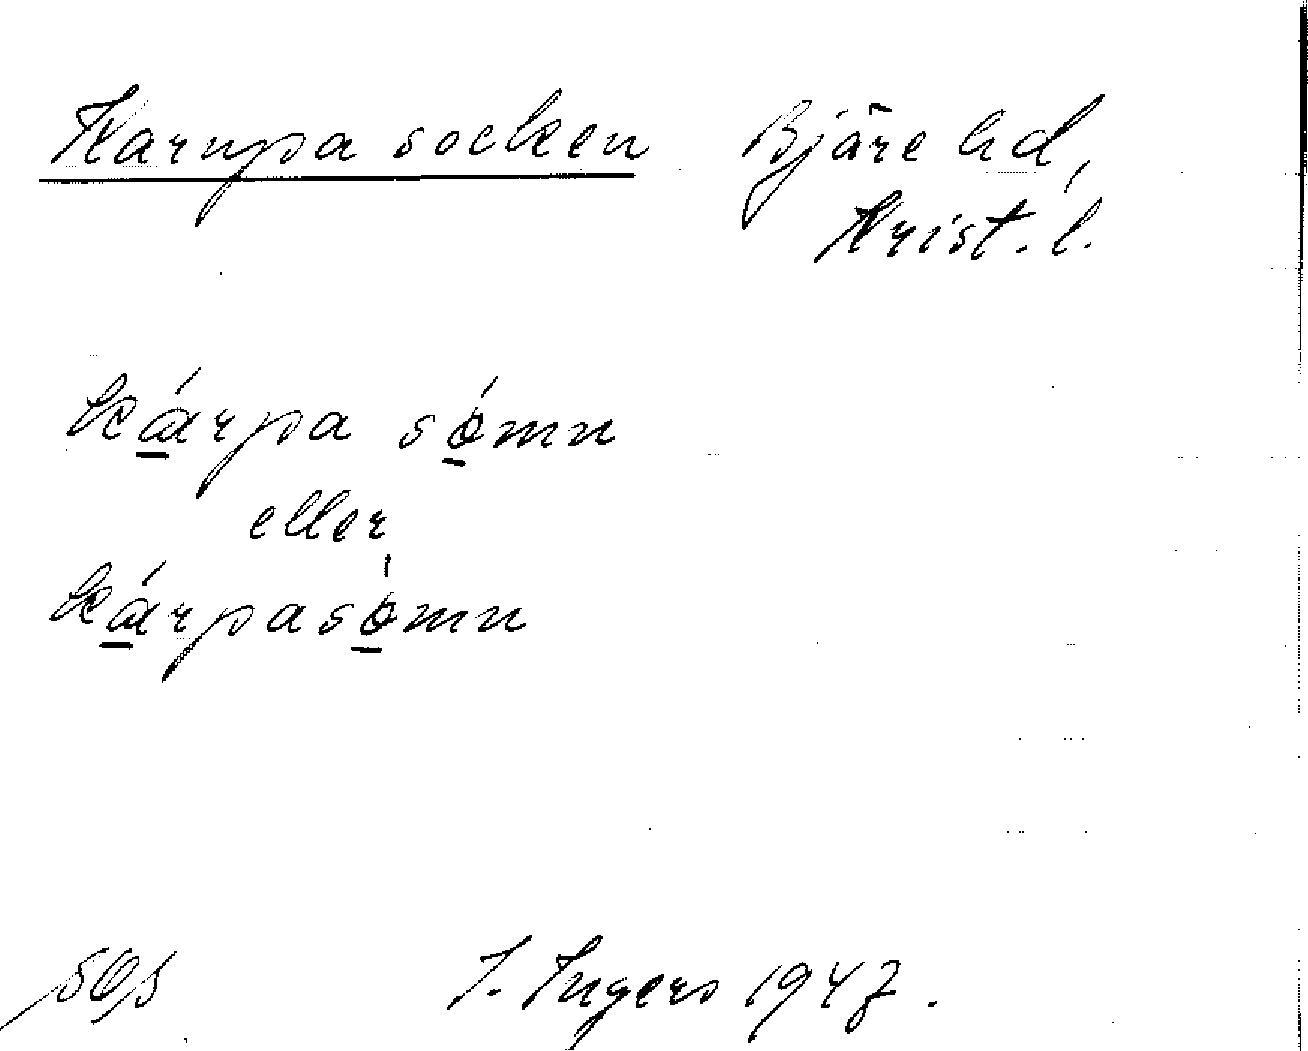 Karupa socken Bjäre hd,
Krist. l.
kárpa sómn
eller
kárpasómn
I. Ingers 1947.